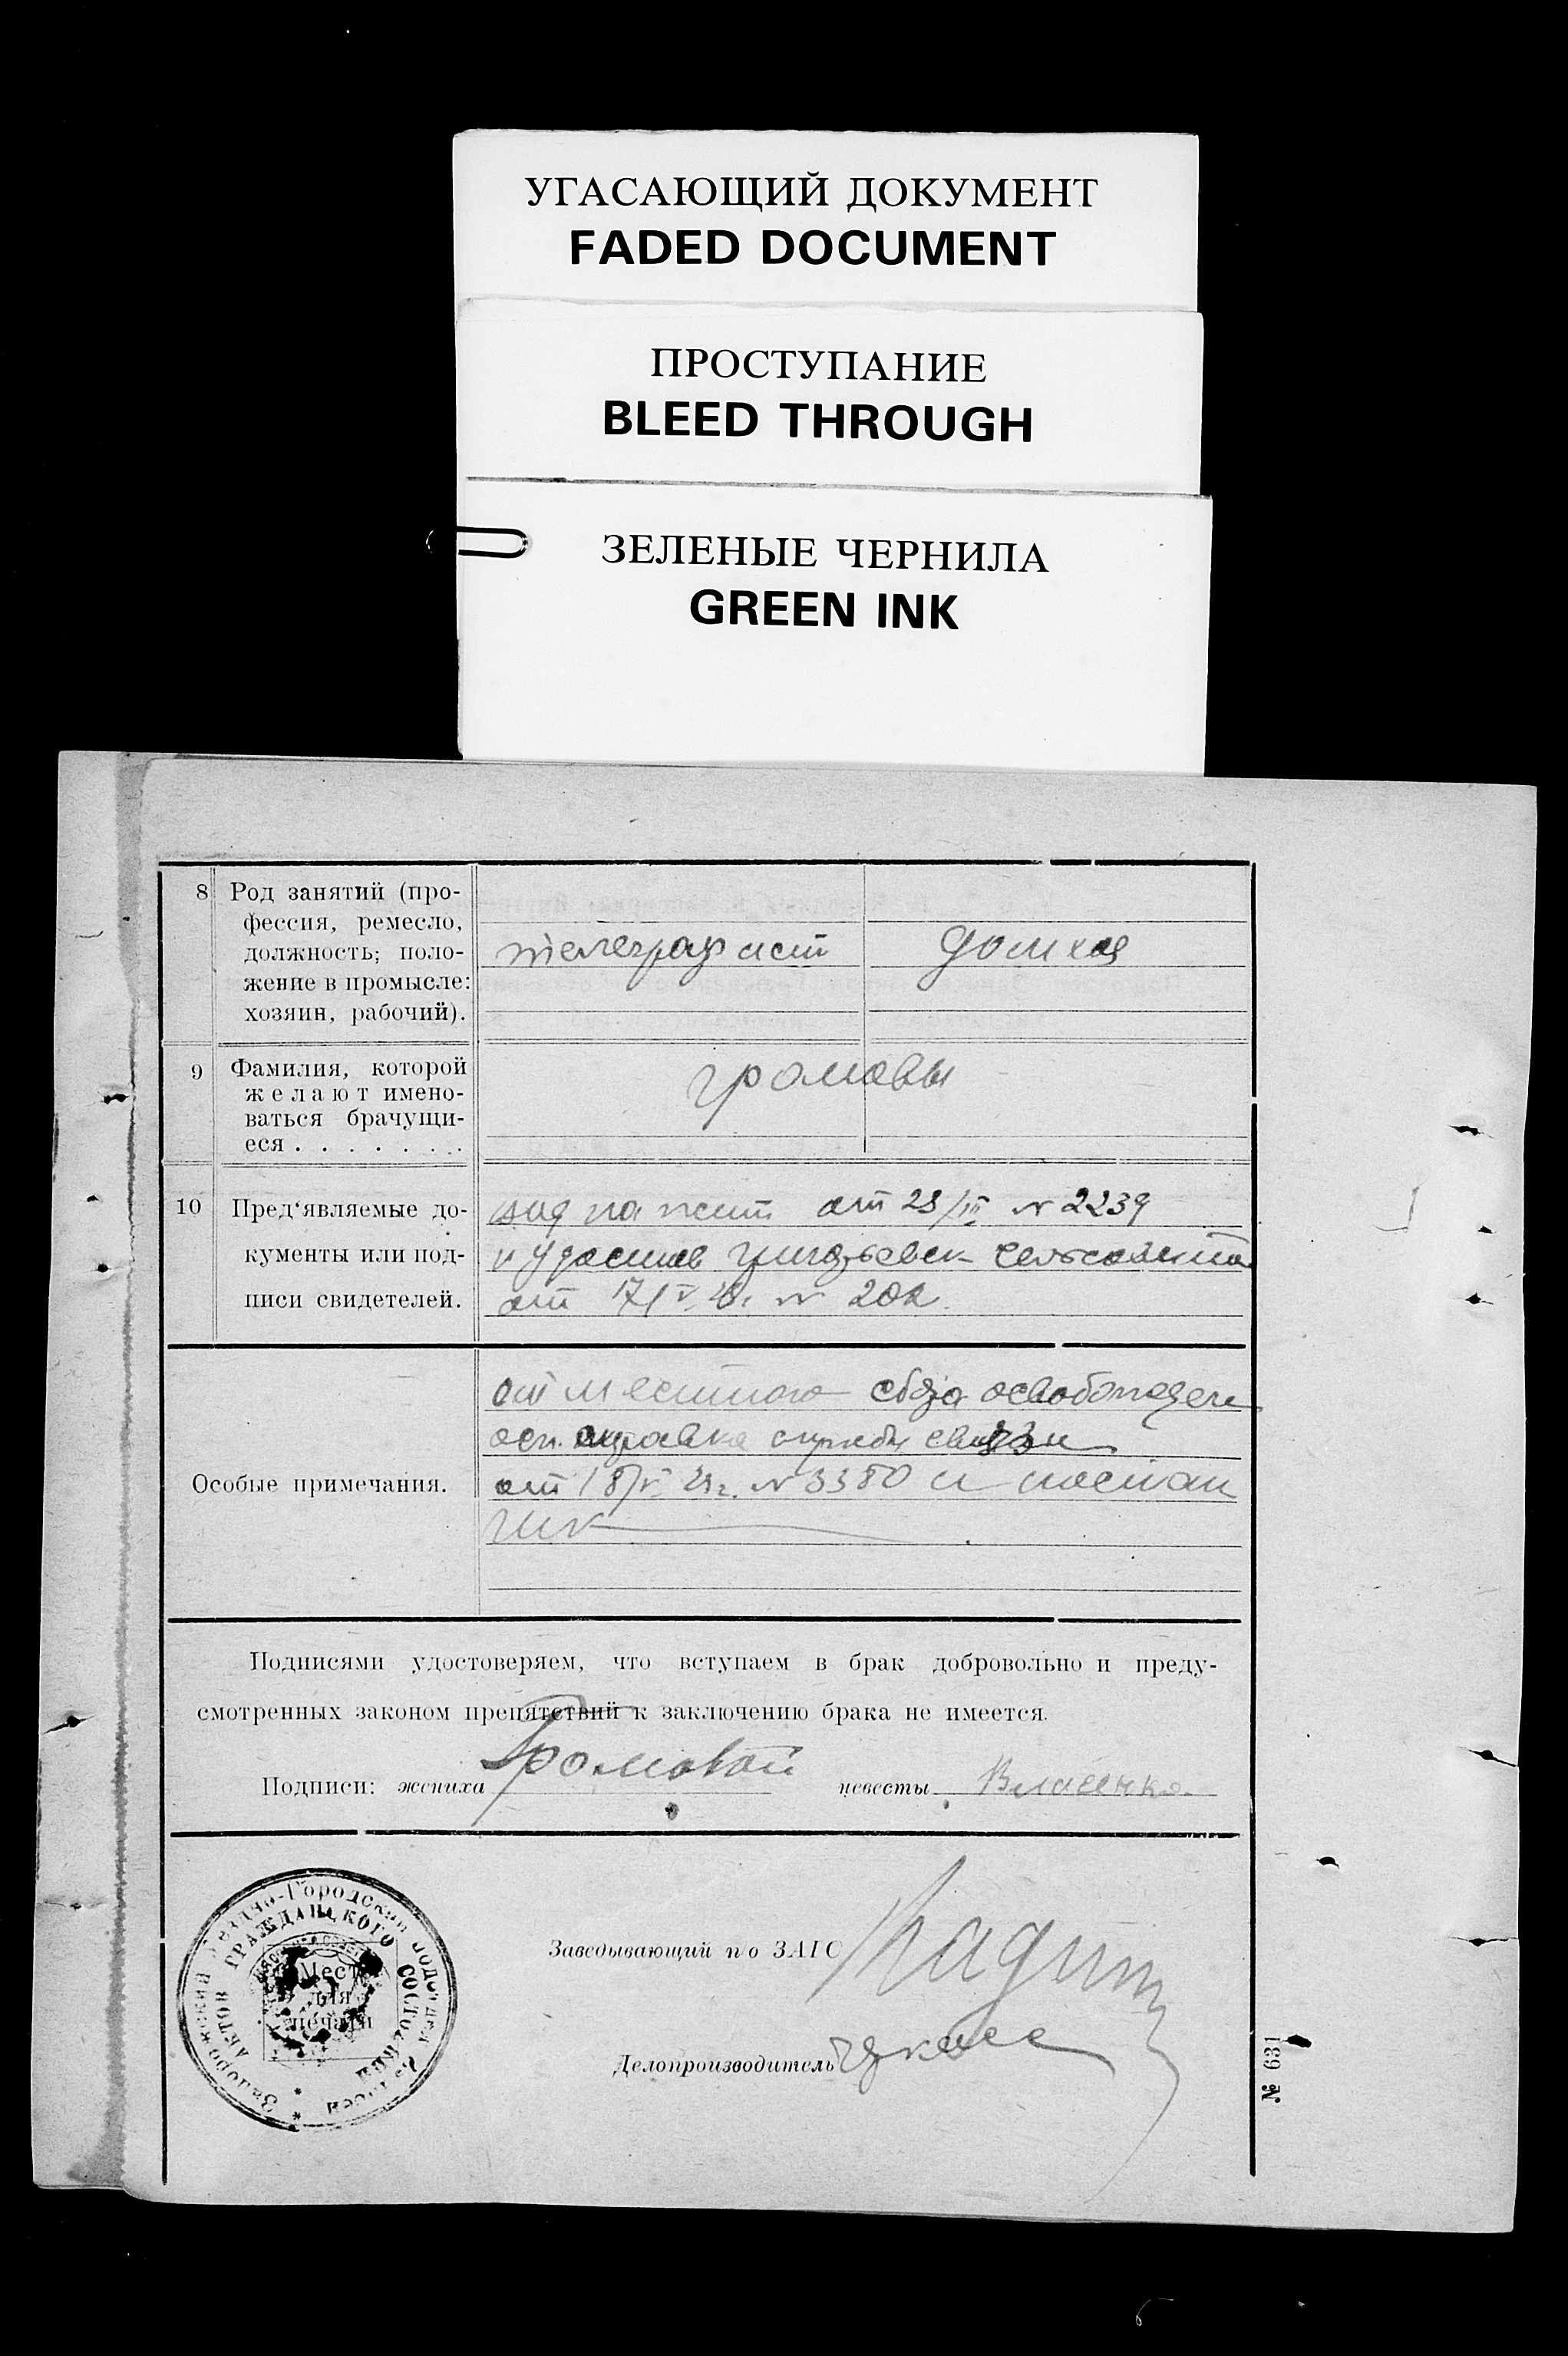 УГАСАЮЩИЙ ДОКУМЕНТ
FADED DOCUMENT
ПРОСТУПАНИЕ
BLEED THROUGH
ЗЕЛЕНЫЕ ЧЕРНИЛА
GREEN INK
8 Род занятий (про-
фессия, ремесло,
должность; поло-
жение в промысле:
хозяин, рабочий).
телеграфист домхоз
9 Фамилия, которой
желают имено-
ваться брачущи-
еся . . . . . . .
громовы
10 Пред'являемые до-
кументы или под-
писи свидетелей.
вид на жит от 23/III N 2239
и удостов сельсовета
от 17/V N 202
Особые примечания.
от местного сбора освобожден
осн. справка службы связи
от 18/V N 3380 и постан
Подписями удостоверяем, что вступаем в брак добровольно и преду-
смотренных законом препятствий к заключению брака не имеется.
Подписи: жениха Громовой невесты Власенко.
Запорожский Уездно-Городской Подотдел Записей
АКТОВ ГРАЖДАНСКОГО СОСТОЯНИЯ
Место
для
печати
Заведывающий по ЗАГС
Делопроизводитель
№ 631